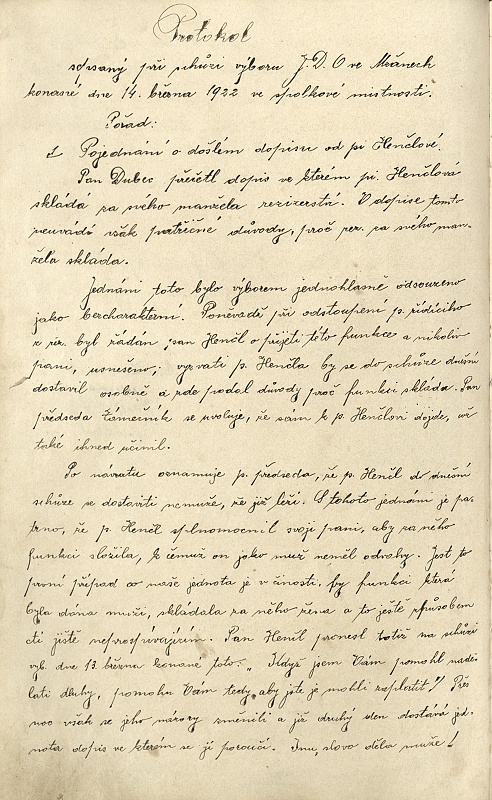 Protokol
sepsaný při schůzi výboru J.D.O ve Mšánech
konané dne 14. března 1922 ve spolkové místnosti.
Pořad:
1 Pojednání o došlém dopisu od pí Henčlové.
Pan Dubec přečetl dopis ve kterém pí. Henčlová
skládá za svého manžela režizerství. V dopise tomto
neuvádí však patřičné důvody, proč rez. za svého man-
žela skládá.
Jednání toto bylo výborem jednohlasně odsouzeno
jako bezcharakterní. Poněvadž při odstoupení p. řídícího
z rez. byl žádán pan Henčl o přijetí této funkce a nikoliv
paní, usneseno, vyzvati p. Henčla by se do schůze dnešní
dostavil osobně a zde podal důvody proč funkci skládá. Pan
předseda Zámečník se uvoluje, že sám k p. Henčlovi dojde, což
také ihned učinil.
Po návratu oznamuje p. předseda, že p. Henčl do dnešní
schůze se dostaviti nemuže, že již leží. S tohoto jednání je pa-
trno, že p. Henčl splnomocnil svoji paní, aby za něho
funkci složila, k čemuž on jako muž neměl odvahy. Jest to
první případ co naše jednota je v činosti, by funkci která
byla dána muži, skládala za něho žena a to ještě způsobem
cti jistě neprospívajícím. Pan Henčl pronesl totiž na schůzi
výb. dne 13. března konané toto: „Když jsem Vám pomohl naděl-
lati dluhy, pomohu Vám tedy, aby jste je mohli zaplatit!“ Přes
noc však se jeho názory změnili a již druhý den dostává jed-
nota dopis ve kterém se jí poroučí. Inu, slovo dělá muže!